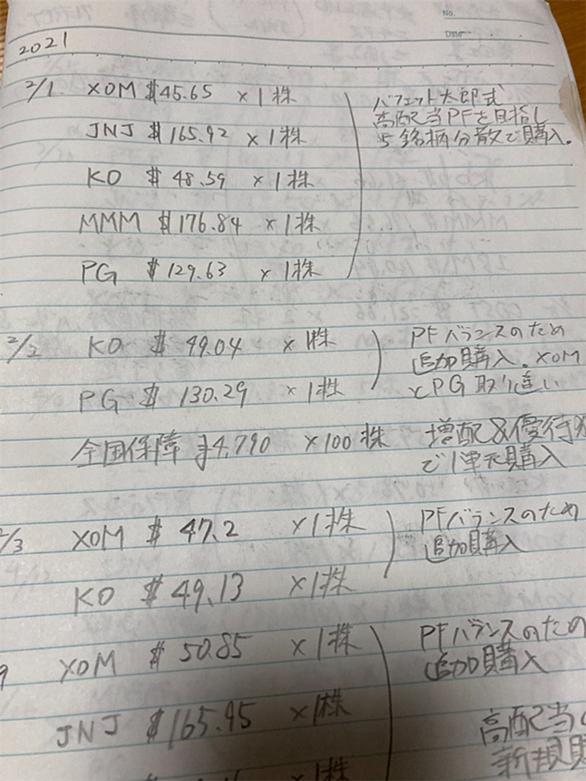 No.
Date
2021
2/1 XOM $45.65 ×1株
JNJ $165.92 ×1株
KO $48.59 ×1株
MMM $176.84 ×1株
PG $129.63 ×1株
バフェット太郎式
高配当PFを目指し
5銘柄分散で購入。
2/2 KO $49.04 ×1株
PG $130.29 ×1株
PFバランスのため
追加購入。XOM
とPG取り違い
全国保障 ¥4,790 ×100株
増配&優待
で1単元購入
2/3 XOM $47.2 ×1株
KO $49.13 ×1株
PFバランスのため
追加購入
9 XOM $50.85 ×1株
JNJ $165.95 ×1株
PFバランスのため
追加購入
高配当
新規